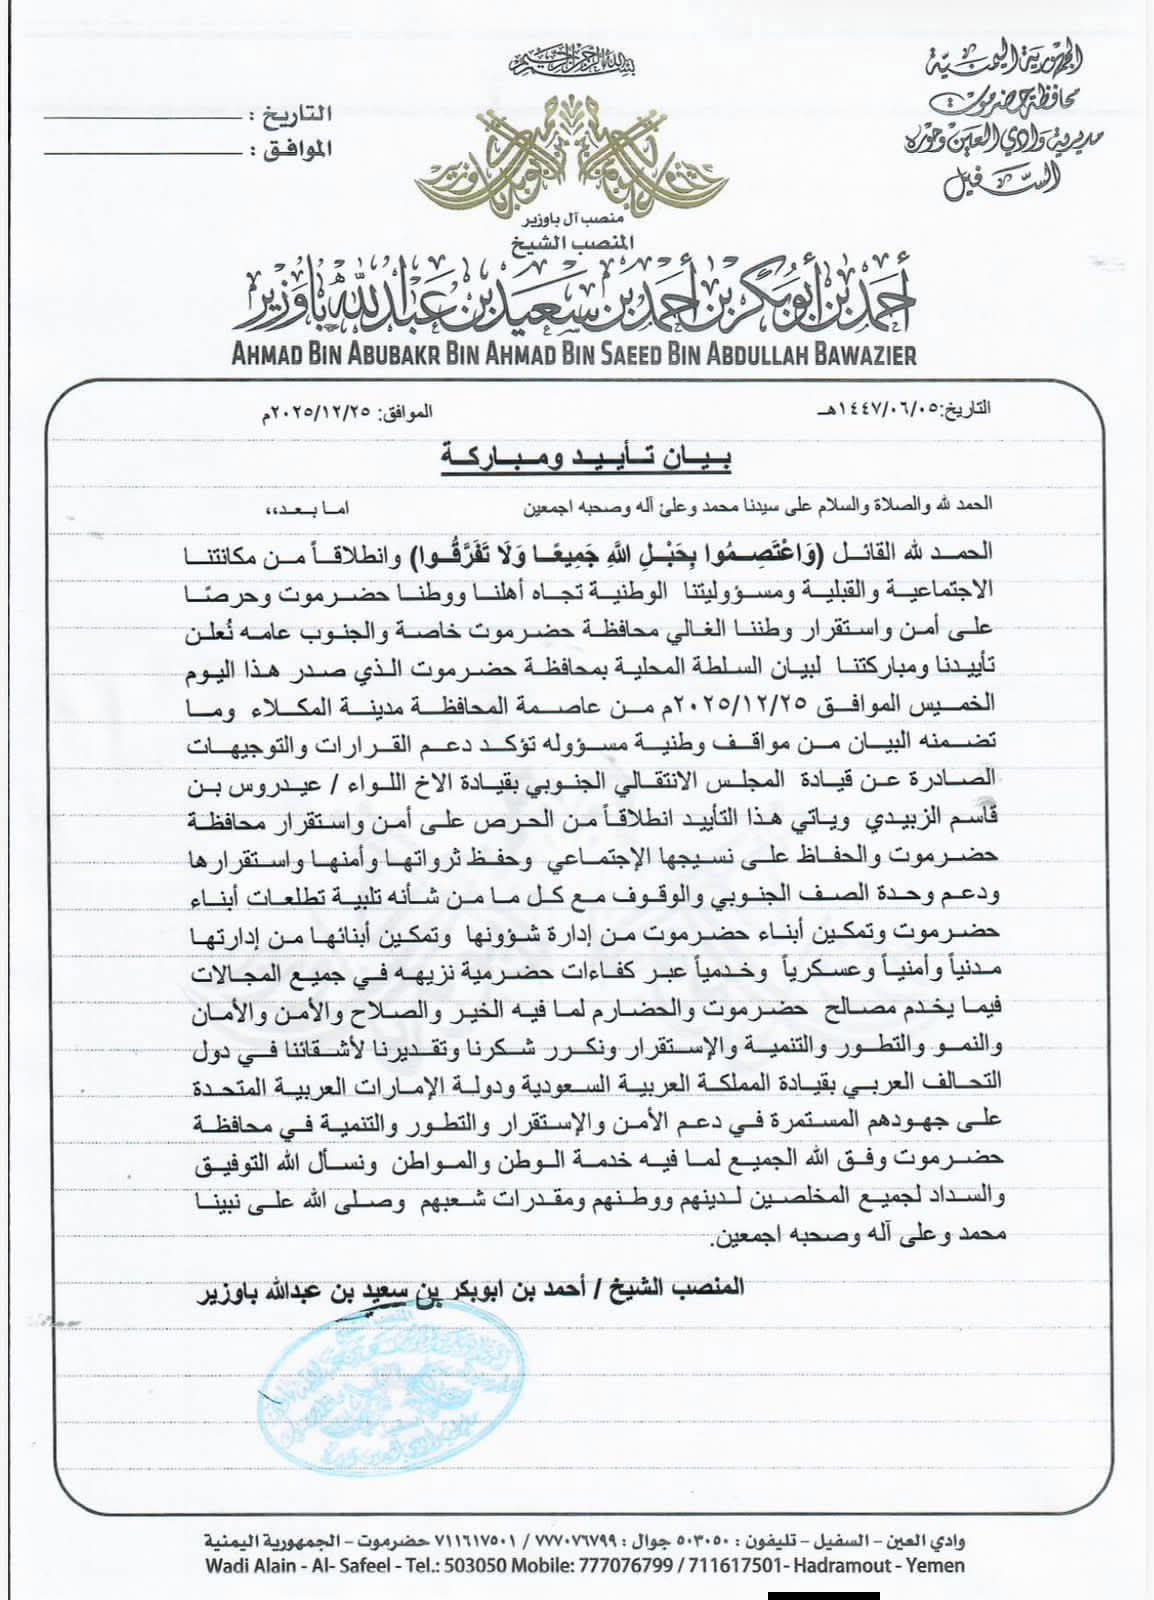 بسم الله الرحمن الرحيم
الجمهورية اليمنية
محافظة حضرموت
مديرية وادي العين وحوره
السفيل
التاريخ :
الموافق :
منصب آل باوزير
المنصب الشيخ
أحمد بن أبوبكر بن أحمد بن سعيد بن عبدالله باوزير
AHMAD BIN ABUBAKR BIN AHMAD BIN SAEED BIN ABDULLAH BAWAZIER
التاريخ:١٤٤٧/٠٦/٠٥هـ الموافق: ٢٠٢٥/١٢/٢٥م
بيان تأييد ومباركة
الحمد لله والصلاة والسلام على سيدنا محمد وعلى آله وصحبه اجمعين اما بعد،،
الحمد لله القائل (وَاعْتَصِمُوا بِحَبْلِ اللَّهِ جَمِيعًا وَلَا تَفَرَّقُوا) وانطلاقاً من مكانتنا
الاجتماعية والقبلية ومسؤوليتنا الوطنية تجاه أهلنا ووطنا حضرموت وحرصًا
على أمن واستقرار وطننا الغالي محافظة حضرموت خاصة والجنوب عامه نُعلن
تأييدنا ومباركتنا لبيان السلطة المحلية بمحافظة حضرموت الذي صدر هذا اليوم
الخميس الموافق ٢٠٢٥/١٢/٢٥م من عاصمة المحافظة مدينة المكلاء وما
تضمنه البيان من مواقف وطنية مسؤوله تؤكد دعم القرارات والتوجيهات
الصادرة عن قيادة المجلس الانتقالي الجنوبي بقيادة الاخ اللواء / عيدروس بن
قاسم الزبيدي وياتي هذا التأييد انطلاقاً من الحرص على أمن واستقرار محافظة
حضرموت والحفاظ على نسيجها الإجتماعي وحفظ ثرواتها وأمنها واستقرارها
ودعم وحدة الصف الجنوبي والوقوف مع كل ما من شأنه تلبية تطلعات أبناء
حضرموت وتمكين أبناء حضرموت من إدارة شؤونها وتمكين أبنائها من إدارتها
مدنياً وأمنياً وعسكرياً وخدمياً عبر كفاءات حضرمية نزيهه في جميع المجالات
فيما يخدم مصالح حضرموت والحضارم لما فيه الخير والصلاح والأمن والأمان
والنمو والتطور والتنمية والإستقرار ونكرر شكرنا وتقديرنا لأشقائنا في دول
التحالف العربي بقيادة المملكة العربية السعودية ودولة الإمارات العربية المتحدة
على جهودهم المستمرة في دعم الأمن والإستقرار والتطور والتنمية في محافظة
حضرموت وفق الله الجميع لما فيه خدمة الوطن والمواطن ونسأل الله التوفيق
والسداد لجميع المخلصين لدينهم ووطنهم ومقدرات شعبهم وصلى الله على نبينا
محمد وعلى آله وصحبه اجمعين.
المنصب الشيخ / أحمد بن ابوبكر بن سعيد بن عبدالله باوزير
وادي العين - السفيل - تليفون : ٥٠٣٠٥٠ جوال : ٧٧٧٠٧٦٧٩٩ / ٧١١٦١٧٥٠١ حضرموت - الجمهورية اليمنية
Wadi Alain - Al- Safeel - Tel.: 503050 Mobile: 777076799 / 711617501- Hadramout - Yemen